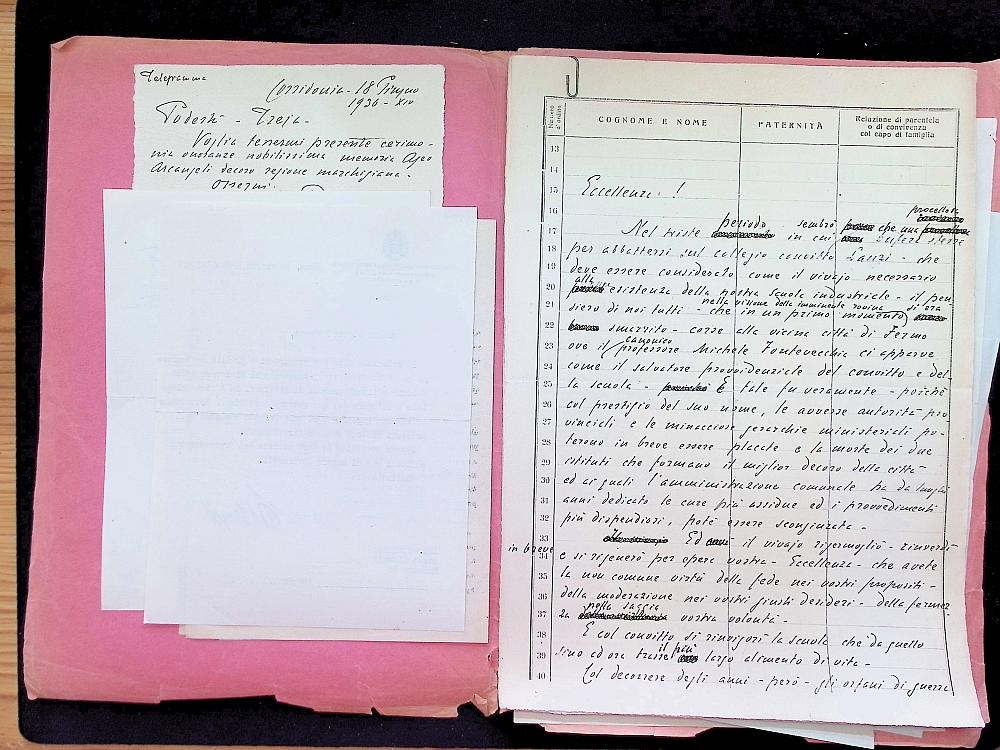 Telegramma
Corridonia - 18 Giugno
1936 - XIV
Podestà - Treja -
Voglia tenermi presente cerimo-
nia onoranze nobilissima memoria
Arcangeli decoro regione marchigiana -
Ossequi
Numero d'ordine
COGNOME E NOME
PATERNITÀ
Relazione di parentela
o di convivenza
col capo di famiglia
13
14
15 Eccellenza !
16 procellosa
periodo
17 Nel triste in cui sembrò che una
18 per abbattersi sul collegio convitto Lanzi - che
19 deve essere considerato come il vivajo necessario
alla
20 l'esistenza della nostra scuola industriale - il pen
nella visione della imminente rovina si era
21 siero di noi tutti - che in un primo momento
22 smarrito - corse alla vicina città di Fermo
canonico
23 ove il professore Michele Fontevecchia ci apparve
24 come il salvatore provvidenziale del convitto e del-
25 la scuola - E tale fu veramente - poiché
26 col prestigio del suo nome, le avverse autorità pro
27 vinciali e le minacciose gerarchie ministeriali po-
28 terono in breve essere placate e la morte dei due
29 istituti che formano il miglior decoro della città -
30 ed ai quali l'amministrazione comunale ha da lunghi
31 anni dedicato le cure più assidue ed i provvedimenti
32 più dispendiosi, poté essere scongiurata -
33 Ed il vivajo rigermogliò - rinverdì
in breve
34 e si rigenerò per opera vostra - Eccellenza - che avete
35 la non comune virtù della fede nei vostri propositi -
36 della moderazione nei vostri giusti desideri - della fermez
nella saggia
37 za vostra volontà -
38 E col convitto si rinvigorì la scuola che da quello
il più
39 sino ad ora trasse largo alimento di vita -
40 Col decorrere degli anni - però - gli orfani di guerra